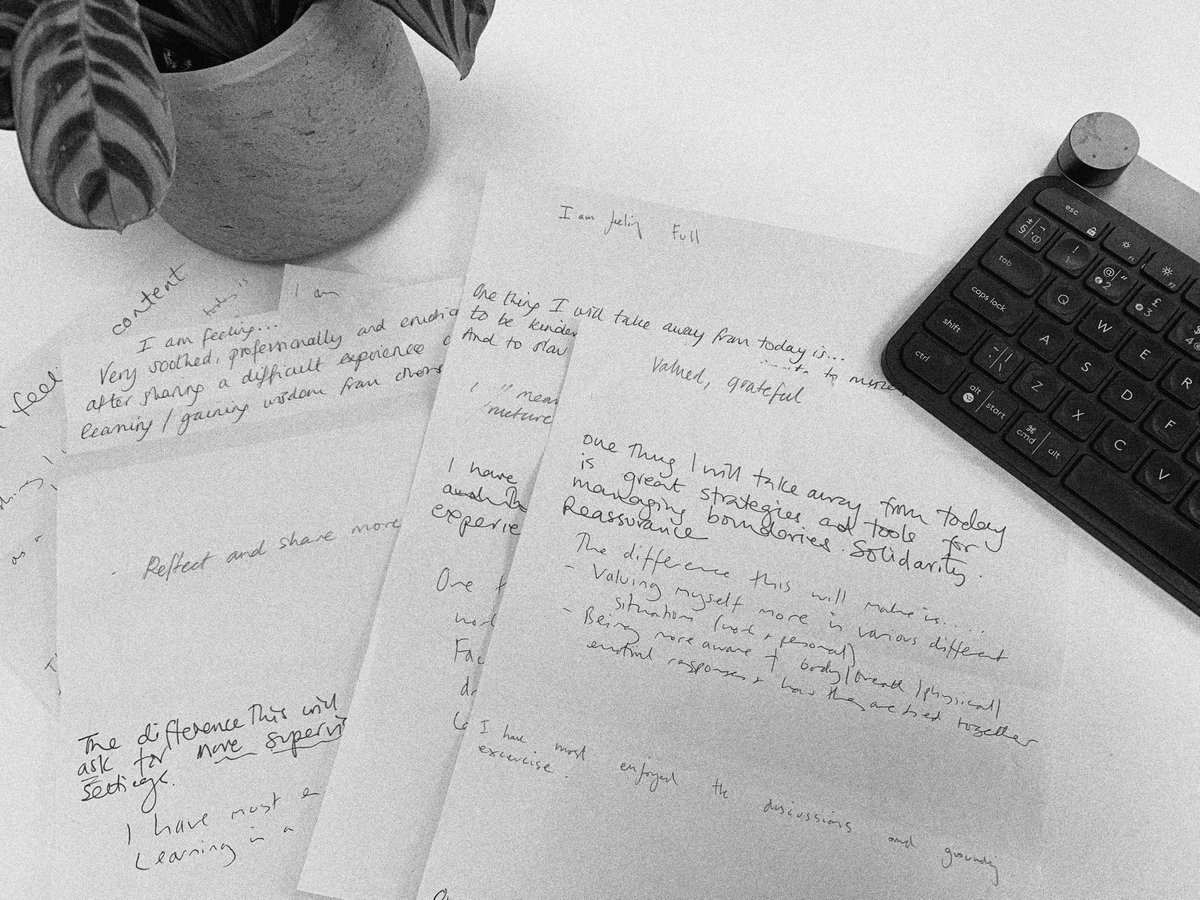 content
today is
I am
I am feeling...
Very soothed, professionally and
after sharing a difficult experience
learning / gaining wisdom from
feel
as a
Reflect and share more
The difference This will
ask for more supervi
settings.
I have most e
Learning in a
I am feeling Full
One thing I will take away from today is...
to be kinder to myse
And to
I will
nurture
I have
experie
One
Fac
Valued, grateful
One thing I will take away from today
is great strategies and tools for
managing boundaries. Solidarity.
Reassurance
The difference this will make is.....
- Valuing myself more in various different
situations (work + personal)
- Being more aware of body/breath/physical/
emotional responses + how they are tied together
I have most enjoyed the discussions and grounding
excercise.
esc
tab
caps lock
shift
ctrl
alt
start
cmd
alt
! 1
@ " 2
£ 3
$ 4
Q W E R
A S D F
Z X C V